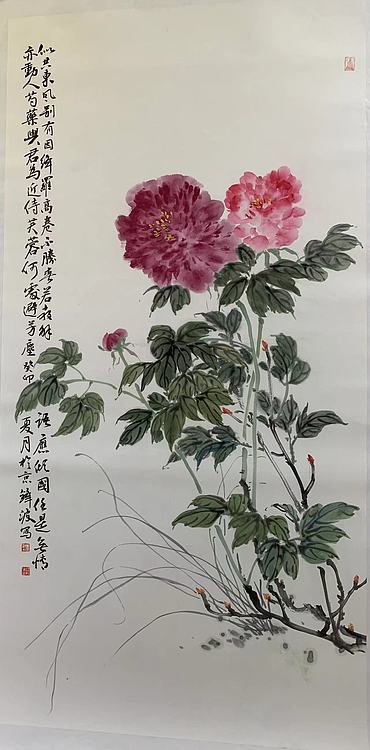 似共東風別有因絳羅高卷不勝春若教解語應傾國任是無情
亦動人芍藥與君為近侍芙蓉何處避芳塵癸卯夏月於京波写